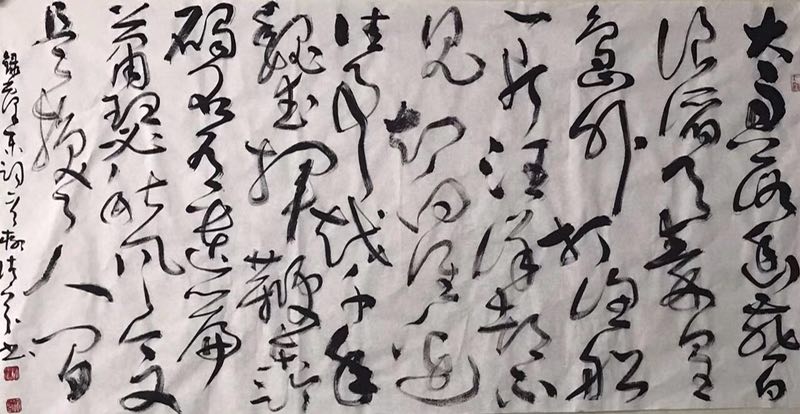 大雨落幽燕白
浪滔天秦皇
岛外打渔船
一片汪洋都不
见知向谁边
往事越千年
魏武挥鞭东临
碣石有遗篇
萧瑟秋风今又
是换了人间
录毛泽东词 书